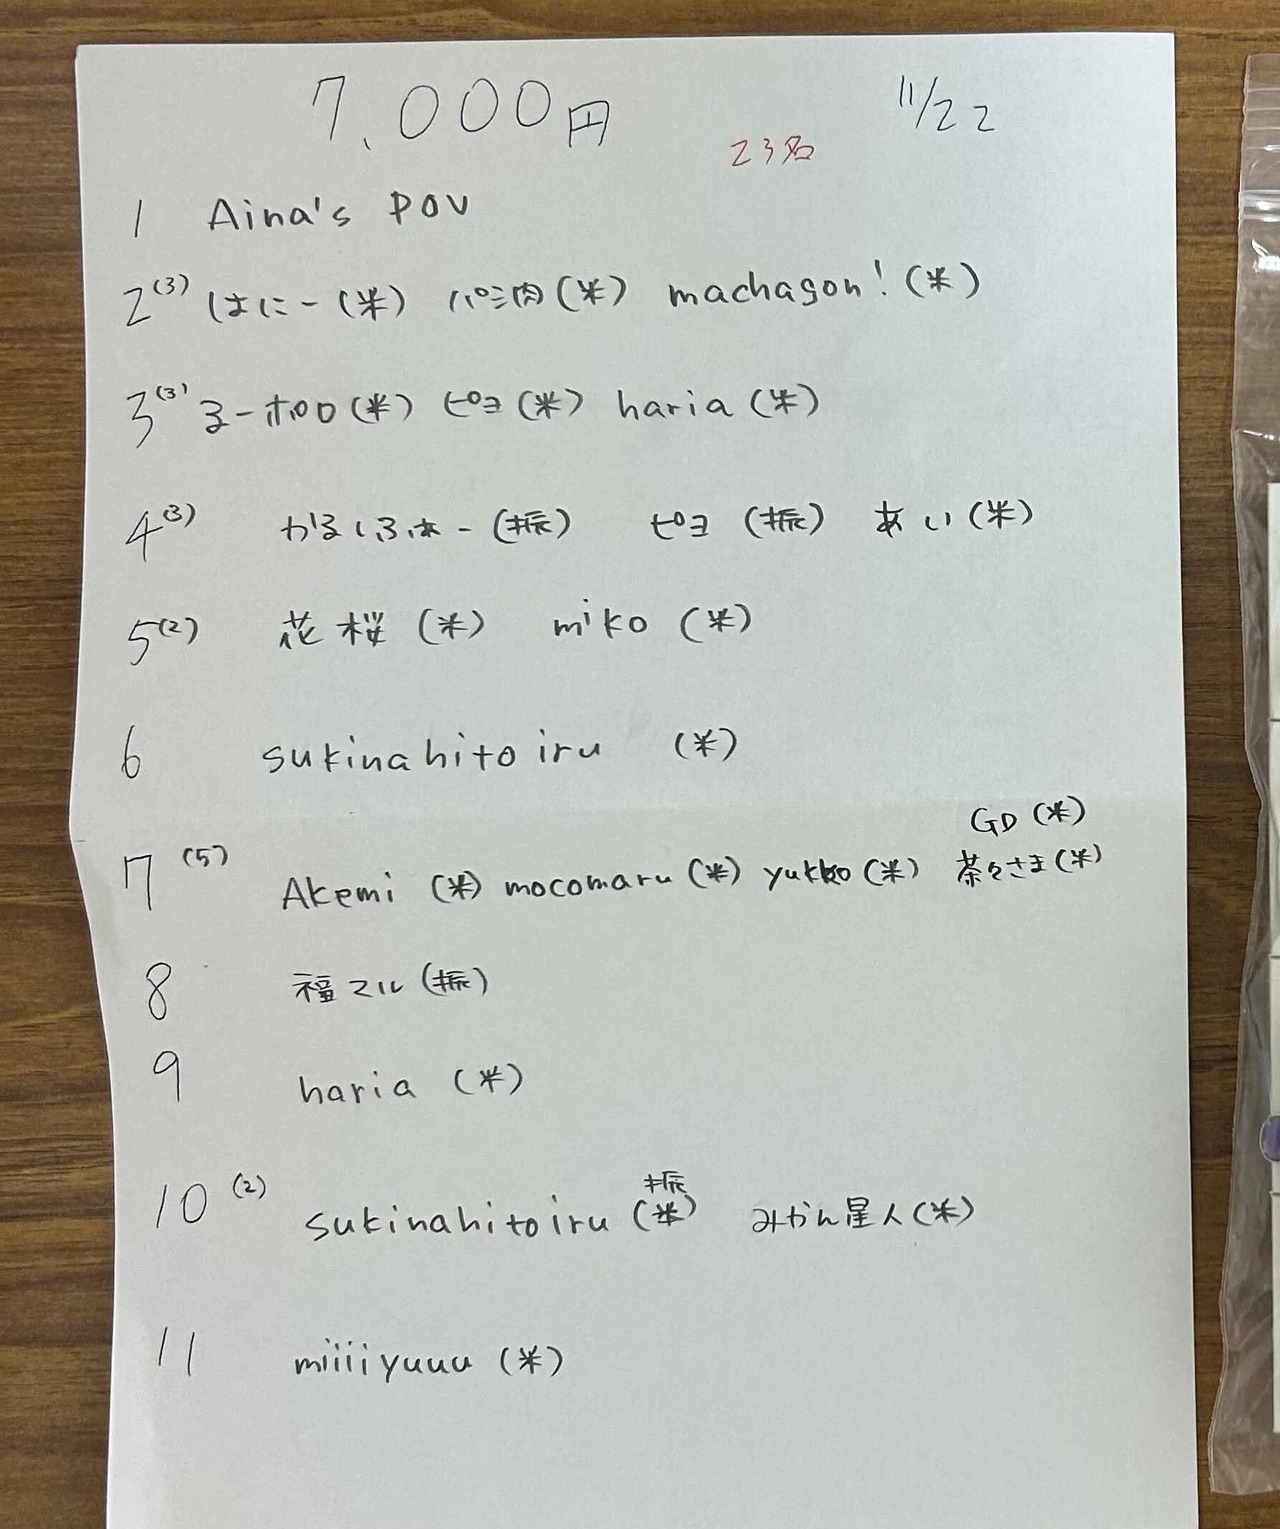 7,000円
11/22
23名
1 Aina's POV
2(3) はにー(米) パシ肉(米) machagon!(米)
3(3) るーポロ(米) ピヨ(米) haria(米)
4(3) かるしふぁー(振) ピヨ(振) あい(米)
5(2) 花桜(米) miko(米)
6 sukinahitoiru (米)
GD(米)
7(5) Akemi(米) mocomaru(米) yukko(米) 茶々さま(米)
8 福マル(振)
9 haria(米)
振
10(2) sukinahitoiru(米) みかん星人(米)
11 miiiiyuuu(米)